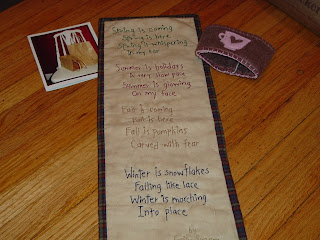 Spring is coming
Spring is here
Spring is whispering
In my ear
Summer is holidays
A very slow pace
Summer is glowing
On my face
Fall is coming
Fall is here
Fall is pumpkins
Carved with fear
Winter is snowflakes
Falling like lace
Winter is marching
Into place
by